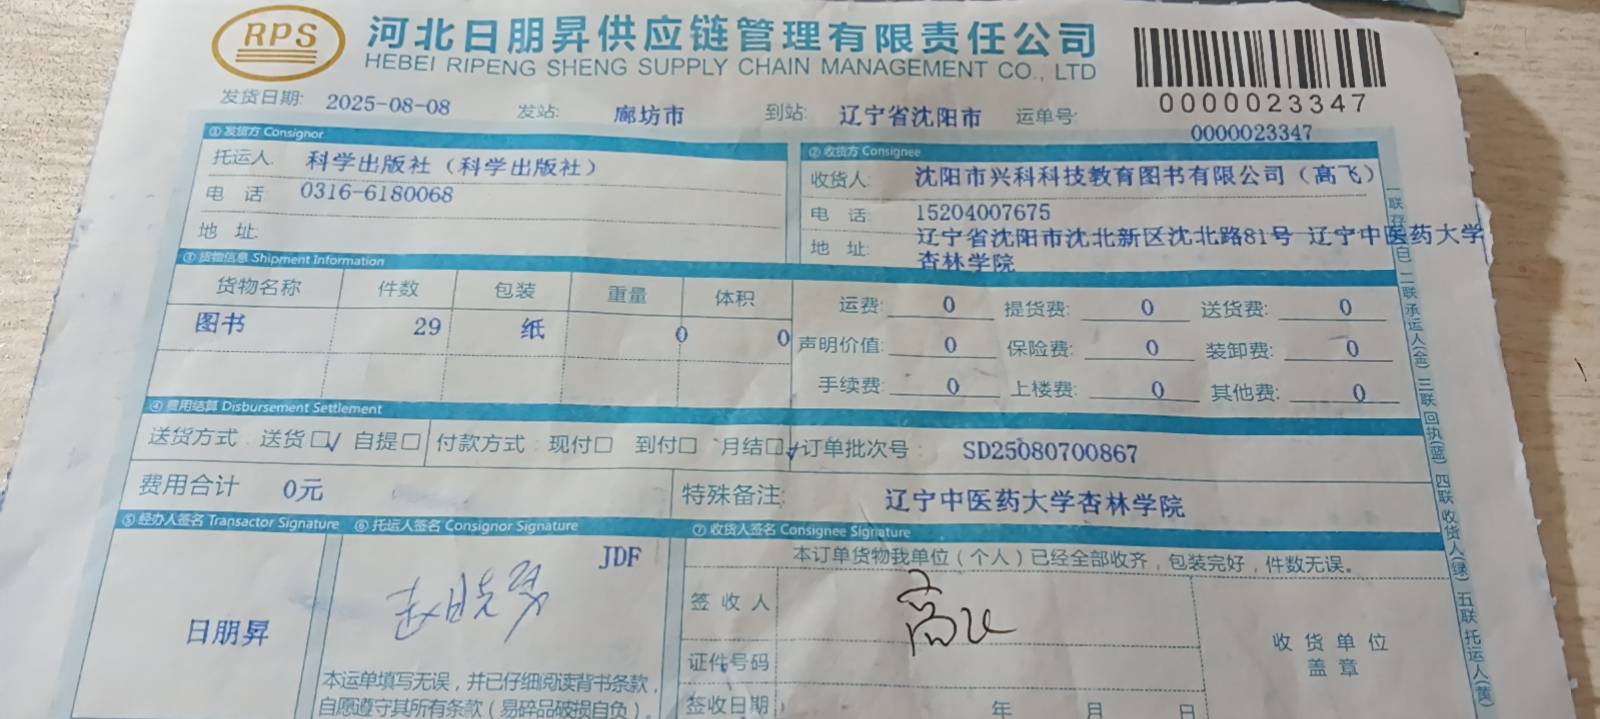 RPS
河北日朋昇供应链管理有限责任公司
HEBEI RIPENG SHENG SUPPLY CHAIN MANAGEMENT CO., LTD
0000023347
发货日期: 2025-08-08 发站: 廊坊市 到站: 辽宁省沈阳市 运单号 0000023347
① 发货方 Consignor
托运人: 科学出版社（科学出版社）
电 话 0316-6180068
地 址:
② 收货方 Consignee
收货人: 沈阳市兴科科技教育图书有限公司（高飞）
电 话: 15204007675
地 址: 辽宁省沈阳市沈北新区沈北路81号 辽宁中医药大学
杏林学院
③ 货物信息 Shipment Information
货物名称 件数 包装 重量 体积
图书 29 纸 0 0
运费: 0 提货费: 0 送货费: 0
声明价值: 0 保险费: 0 装卸费: 0
手续费: 0 上楼费: 0 其他费: 0
④ 费用结算 Disbursement Settlement
送货方式: 送货□√ 自提□ 付款方式: 现付□ 到付□ 月结□√ 订单批次号: SD25080700867
费用合计 0元 特殊备注: 辽宁中医药大学杏林学院
⑤ 经办人签名 Transactor Signature ⑥ 托运人签名 Consignor Signature ⑦ 收货人签名 Consignee Signature
日朋昇
JDF
本运单填写无误，并已仔细阅读背书条款，
自愿遵守其所有条款（易碎品破损自负）。
本订单货物我单位（个人）已经全部收齐，包装完好，件数无误。
签 收 人 高飞
证件号码
签收日期: 年 月 日
收 货 单 位
盖 章
二联 承运人(金) 三联 回执(蓝) 四联 收货人(绿) 五联 托运人(黄)